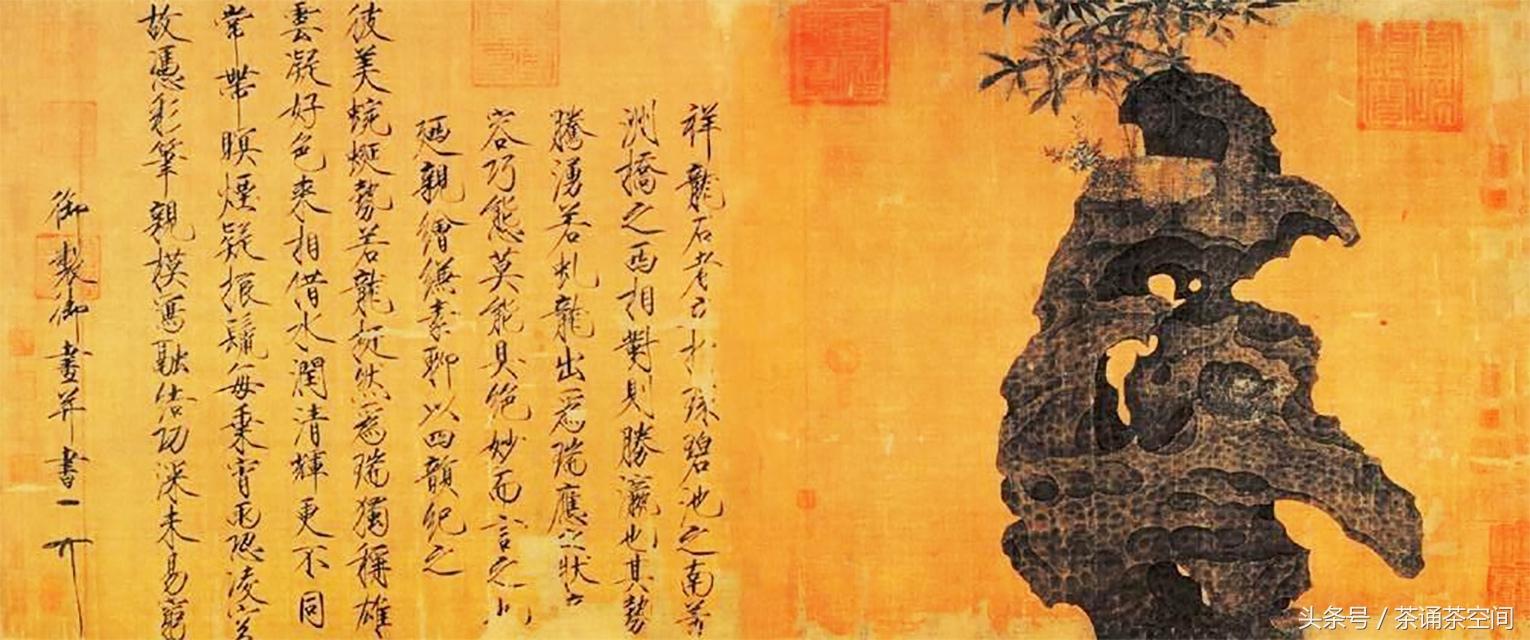 祥龍石者立於環碧池之南芳
洲橋之西相對則勝瀛也其勢
騰湧若虬龍出為瑞應之狀
容巧態莫能具絕妙而言之也
廼親繪縑素聊以四韻紀之
彼美蜿蜒勢若龍挺然為瑞獨稱雄
雲凝好色來相借水潤清輝更不同
常帶暝煙疑振鬣每乘宵雨恐凌空
故憑彩筆親模寫融結功深未易窮
御製御畫并書
头条号 / 茶诵茶空间